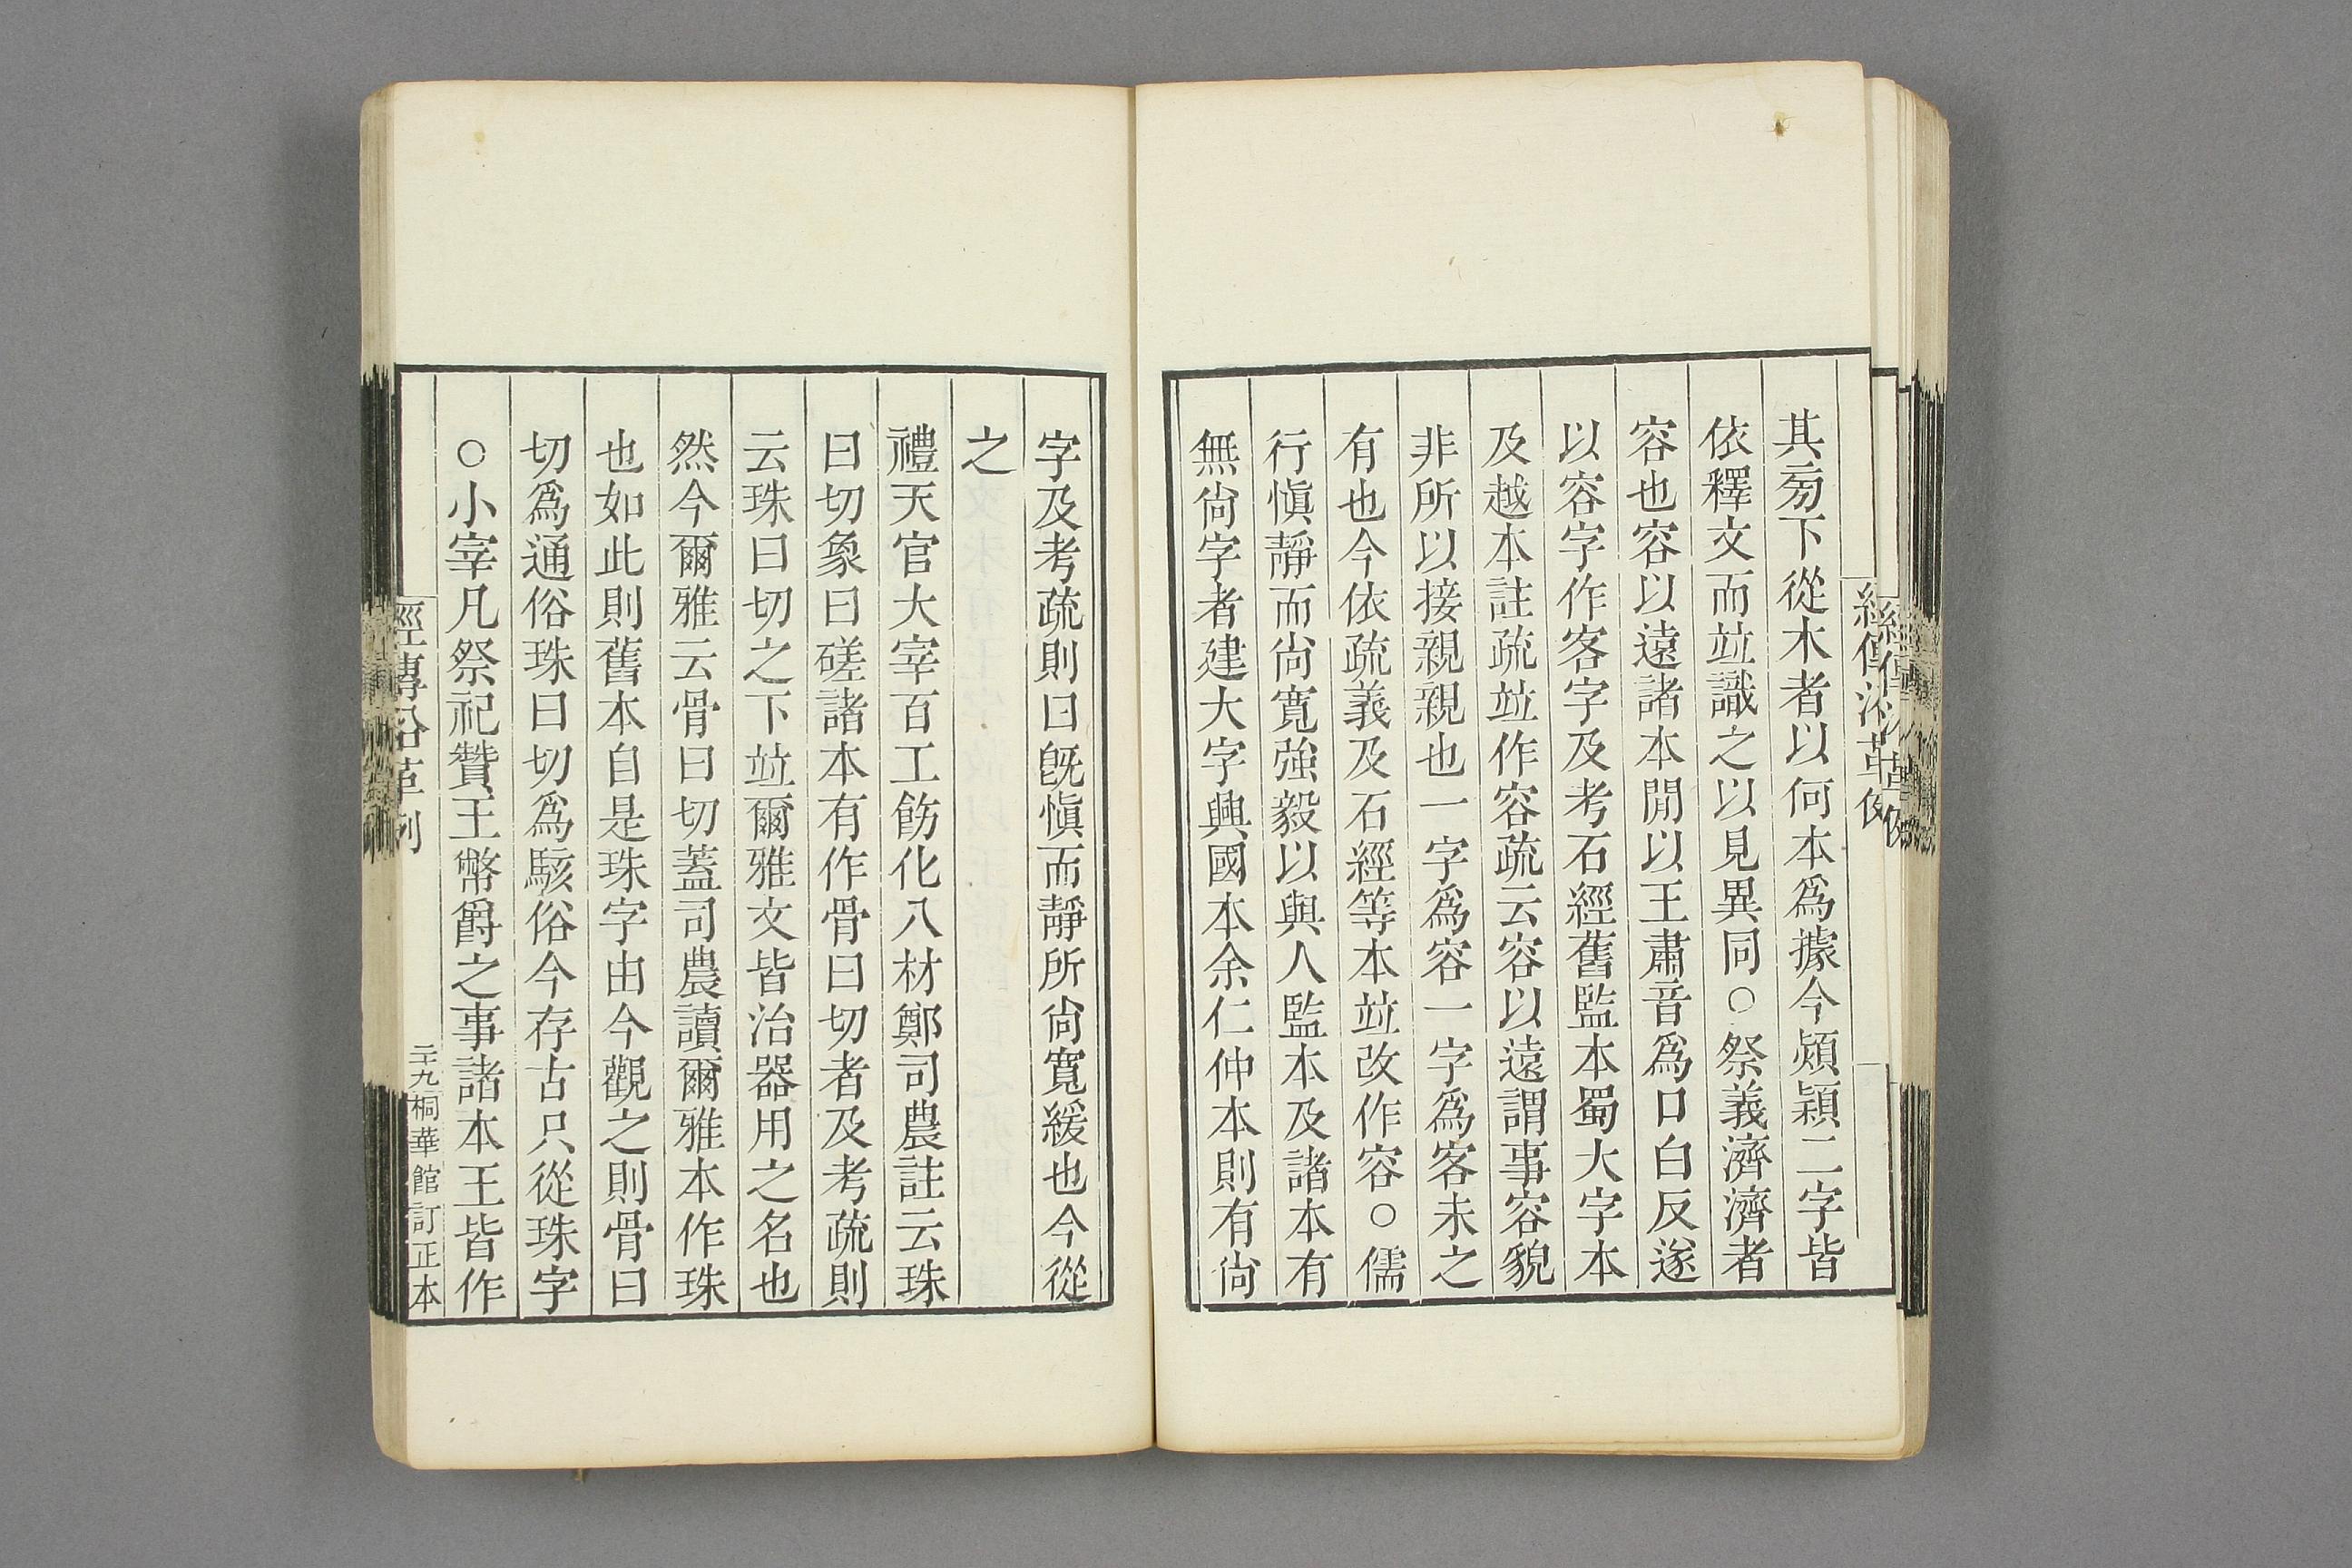 其旁下從木者以何本爲據今潁穎二字皆
依釋文而竝識之以見異同○祭義濟濟者
容也容以遠諸本閒以王肅音爲口白反遂
以容字作客字及考石經舊監本蜀大字本
及越本註疏竝作容疏云容以遠謂事容貌
非所以接親親也一字爲容一字爲客未之
有也今依疏義及石經等本竝改作容○儒
行愼靜而尙寬強毅以與人監本及諸本有
無尙字者建大字興國本余仁仲本則有尙
字及考疏則曰旣愼而靜所尙寬緩也今從
之
禮天官大宰百工飭化八材鄭司農註云珠
曰切象曰磋諸本有作骨曰切者及考疏則
云珠曰切之下竝爾雅文皆治器用之名也
然今爾雅云骨曰切蓋司農讀爾雅本作珠
也如此則舊本自是珠字由今觀之則骨曰
切爲通俗珠曰切爲駭俗今存古只從珠字
○小宰凡祭祀贊王幣爵之事諸本王皆作
經傳沿革例
二十九
桐華館訂正本